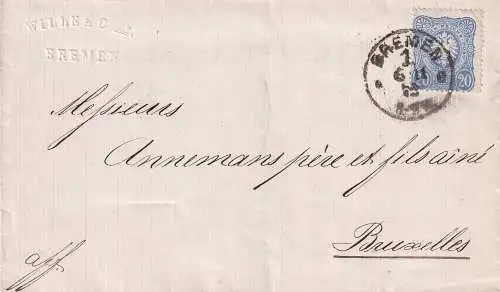 WILLE & C
BREMEN
BREMEN
1
6 11
20
Messieurs
Annemans père et fils ainé
Bruxelles
aff.